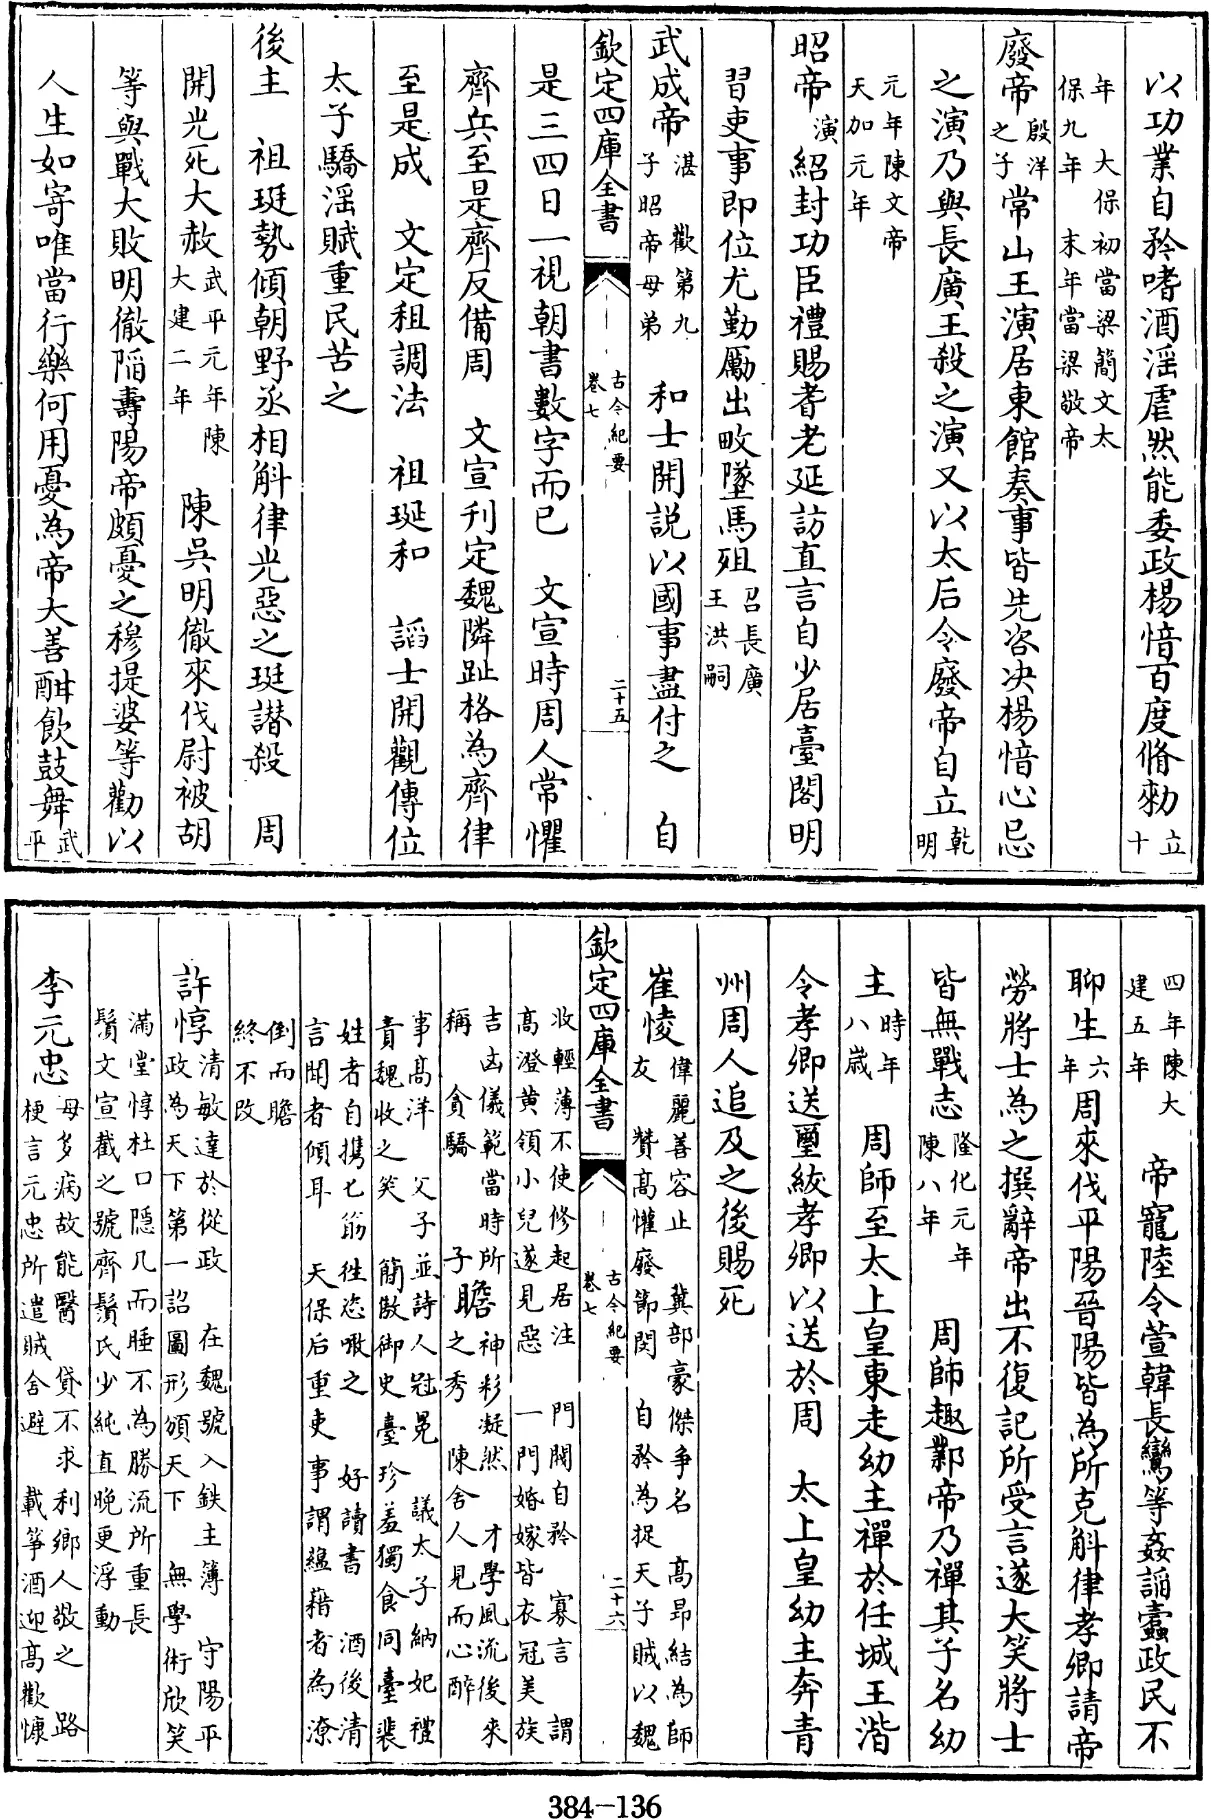 以功業自矜嗜酒淫虐然能委政楊愔百度脩勑立十
年　大保　初當梁簡文太保九年　末年當梁敬帝
廢帝殷洋之子常山王演居東館奏事皆先咨决楊愔心忌
之演乃與長廣王殺之演又以太后令廢帝自立乾明
元年陳文帝天加元年
昭帝演紹封功臣禮賜耆老延訪直言自少居臺閣明
習吏事即位尤勤勵出畋墜馬殂召長廣王洪嗣
武成帝湛　歡第九子昭帝母弟　和士開説以國事盡付之　自
欽定四庫全書　古今紀要卷七　二十五
是三四日一視朝書數字而已　文宣時周人常懼
齊兵至是齊反備周　文宣刋定魏隣趾格為齊律
至是成　文定租調法　祖珽和　謟士開觀傳位
太子驕淫賦重民苦之
後主　祖珽勢傾朝野丞相斛律光惡之珽譖殺　周
開光死大赦武平元年陳大建二年　陳吳明徹來伐尉被胡
等與戰大敗明徹陷壽陽帝頗憂之穆提婆等勸以
人生如寄唯當行樂何用憂為帝大善酣飲鼓舞武平
四年陳大建五年　帝寵陸令萱韓長鸞等姦謟蠹政民不
聊生六年周來伐平陽晉陽皆為所克斛律孝卿請帝
勞將士為之撰辭帝出不復記所受言遂大笑將士
皆無戰志隆化元年陳八年　周師趣鄴帝乃禪其子名幼
主時年八歲　周師至太上皇東走幼主禪於任城王湝
令孝卿送璽紱孝卿以送於周　太上皇幼主奔青
州周人追及之後賜死
崔㥄偉麗善容止　冀部豪傑争名　高昂結為師友　贊高懽廢節閔　自矜為捉天子賊以魏
欽定四庫全書　古今紀要卷七　二十六
收輕薄不使修起居注　門閥自矜　寡言　謂高澄黄領小兒遂見惡　一門婚嫁皆衣冠美族
吉凶儀範當時所稱　貪驕　子瞻神彩凝然　才學風流後來之秀　陳舍人見而心醉
事高洋　父子並詩人冠冕　議太子納妃禮責魏收之笑　簡傲御史臺珍羞獨食同臺裴
姓者自携匕筯徃恣噉之　好讀書　酒後清言聞者傾耳　天保后重吏事謂藴藉者為潦
倒而瞻終不改
許惇清敏達於從政　在魏號入鉄主簿　守陽平政為天下第一詔圖形頒天下　無學術欣笑
滿堂惇杜口隠几而睡不為勝流所重長鬚文宣截之號齊鬚氏少純直晚更浮動
李元忠母多病故能醫　貸不求利鄉人敬之　路梗言元忠所遣賊舍避　載筝酒迎高歡慷
384-136